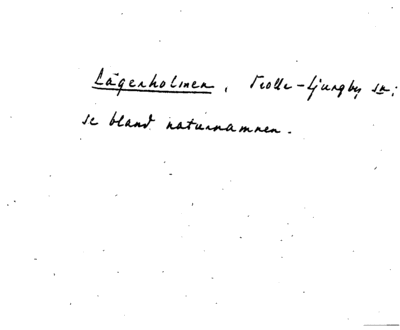 Lägerholmen, Trolle-Ljungby sn:
se bland naturnamnen.